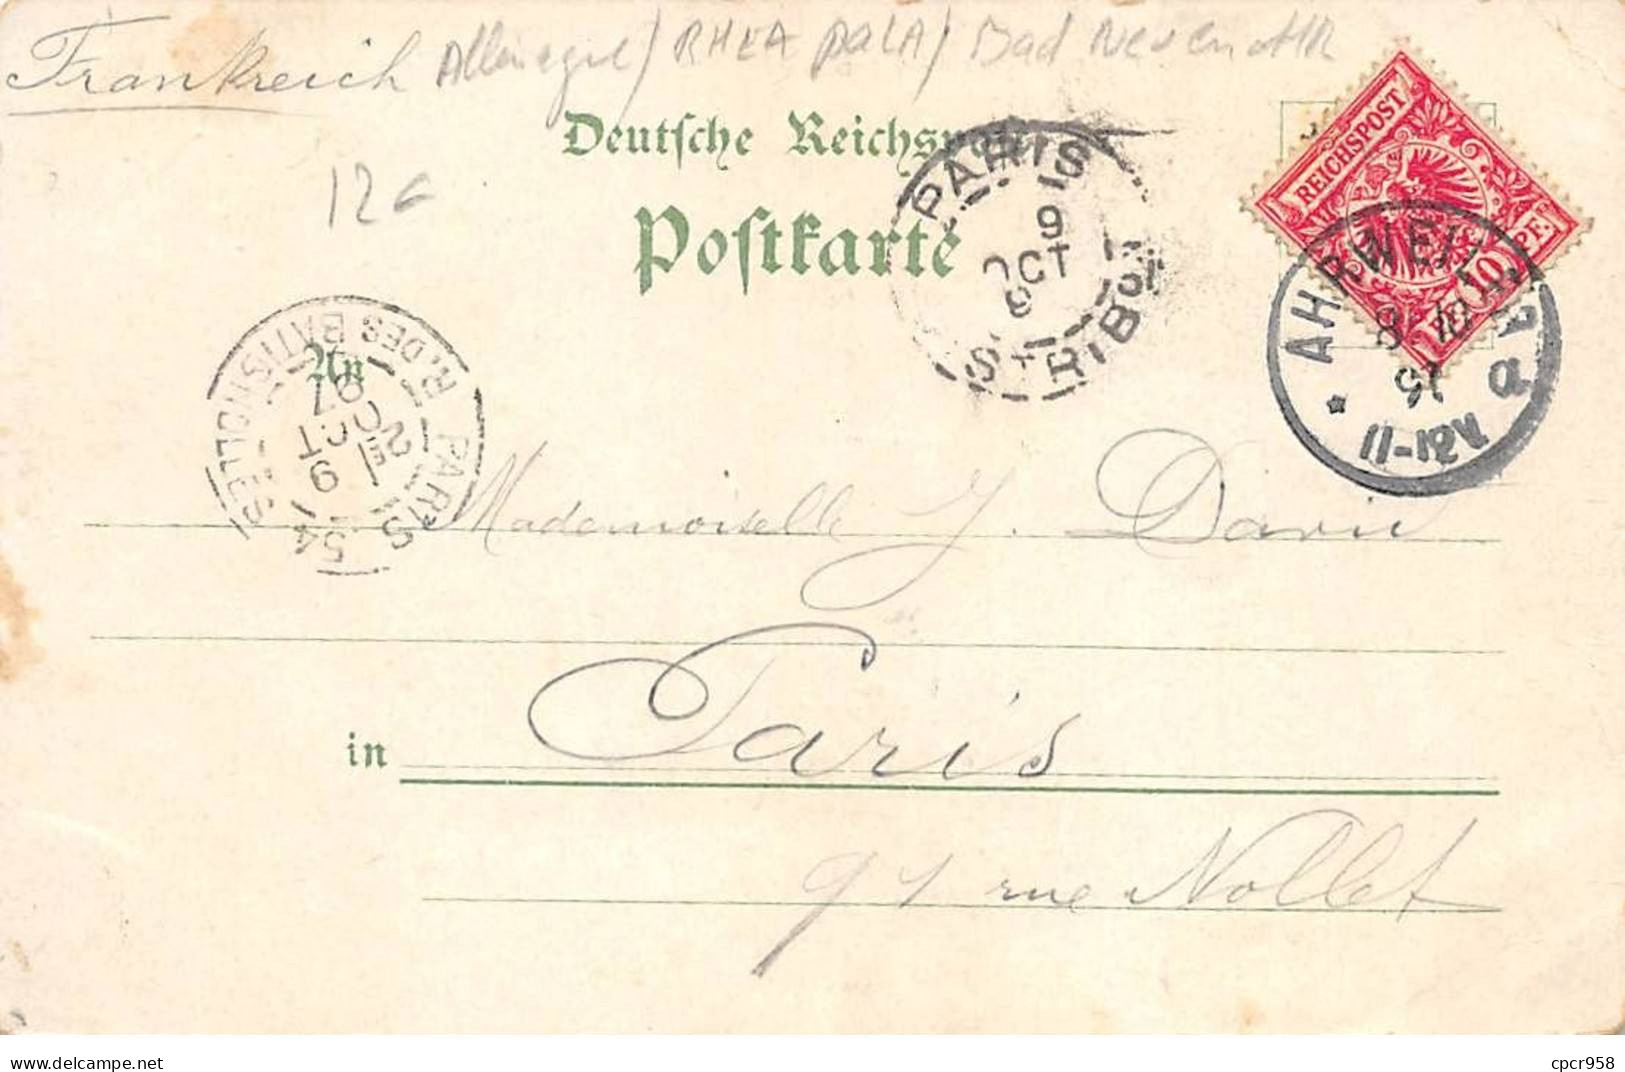 Frankreich Allemagne / RHEA pALA / Bad Neuenahr
Deutsche Reichspost
Postkarte
12€
PARIS
9
OCT
ÉTR
REICHSPOST
10 PF. 10
AHRWEILER
8 10
97
11-12V
a
An
PARIS 54
R. DES BATIGNOLLES
2E
9
OCT
97
Mademoiselle J. David
in Paris
91 rue Nollet
cpcr958